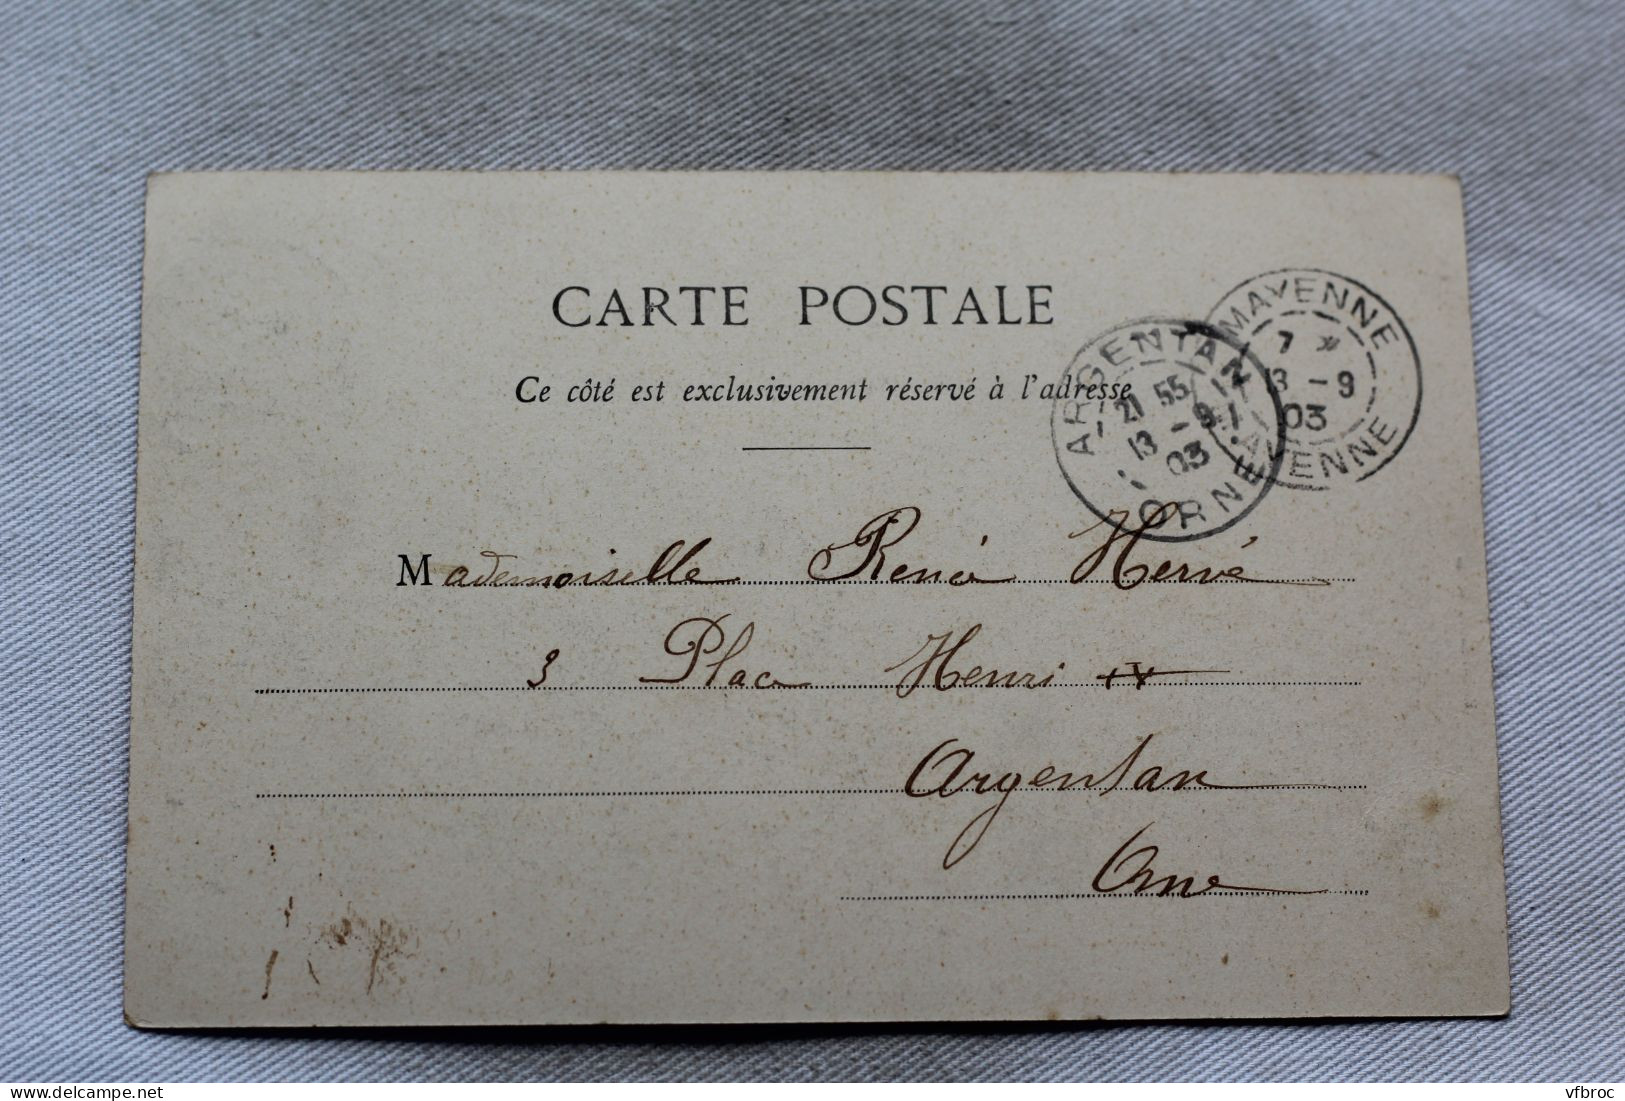 CARTE POSTALE
Ce côté est exclusivement réservé à l'adresse
MAYENNE
7
13 - 9
03
MAYENNE
ARGENTAN
21 55
13 - 9
03
ORNE
Mademoiselle Renée Hervé
3 Place Henri IV
Argentan
Orne
www.delcampe.net
vfbroc